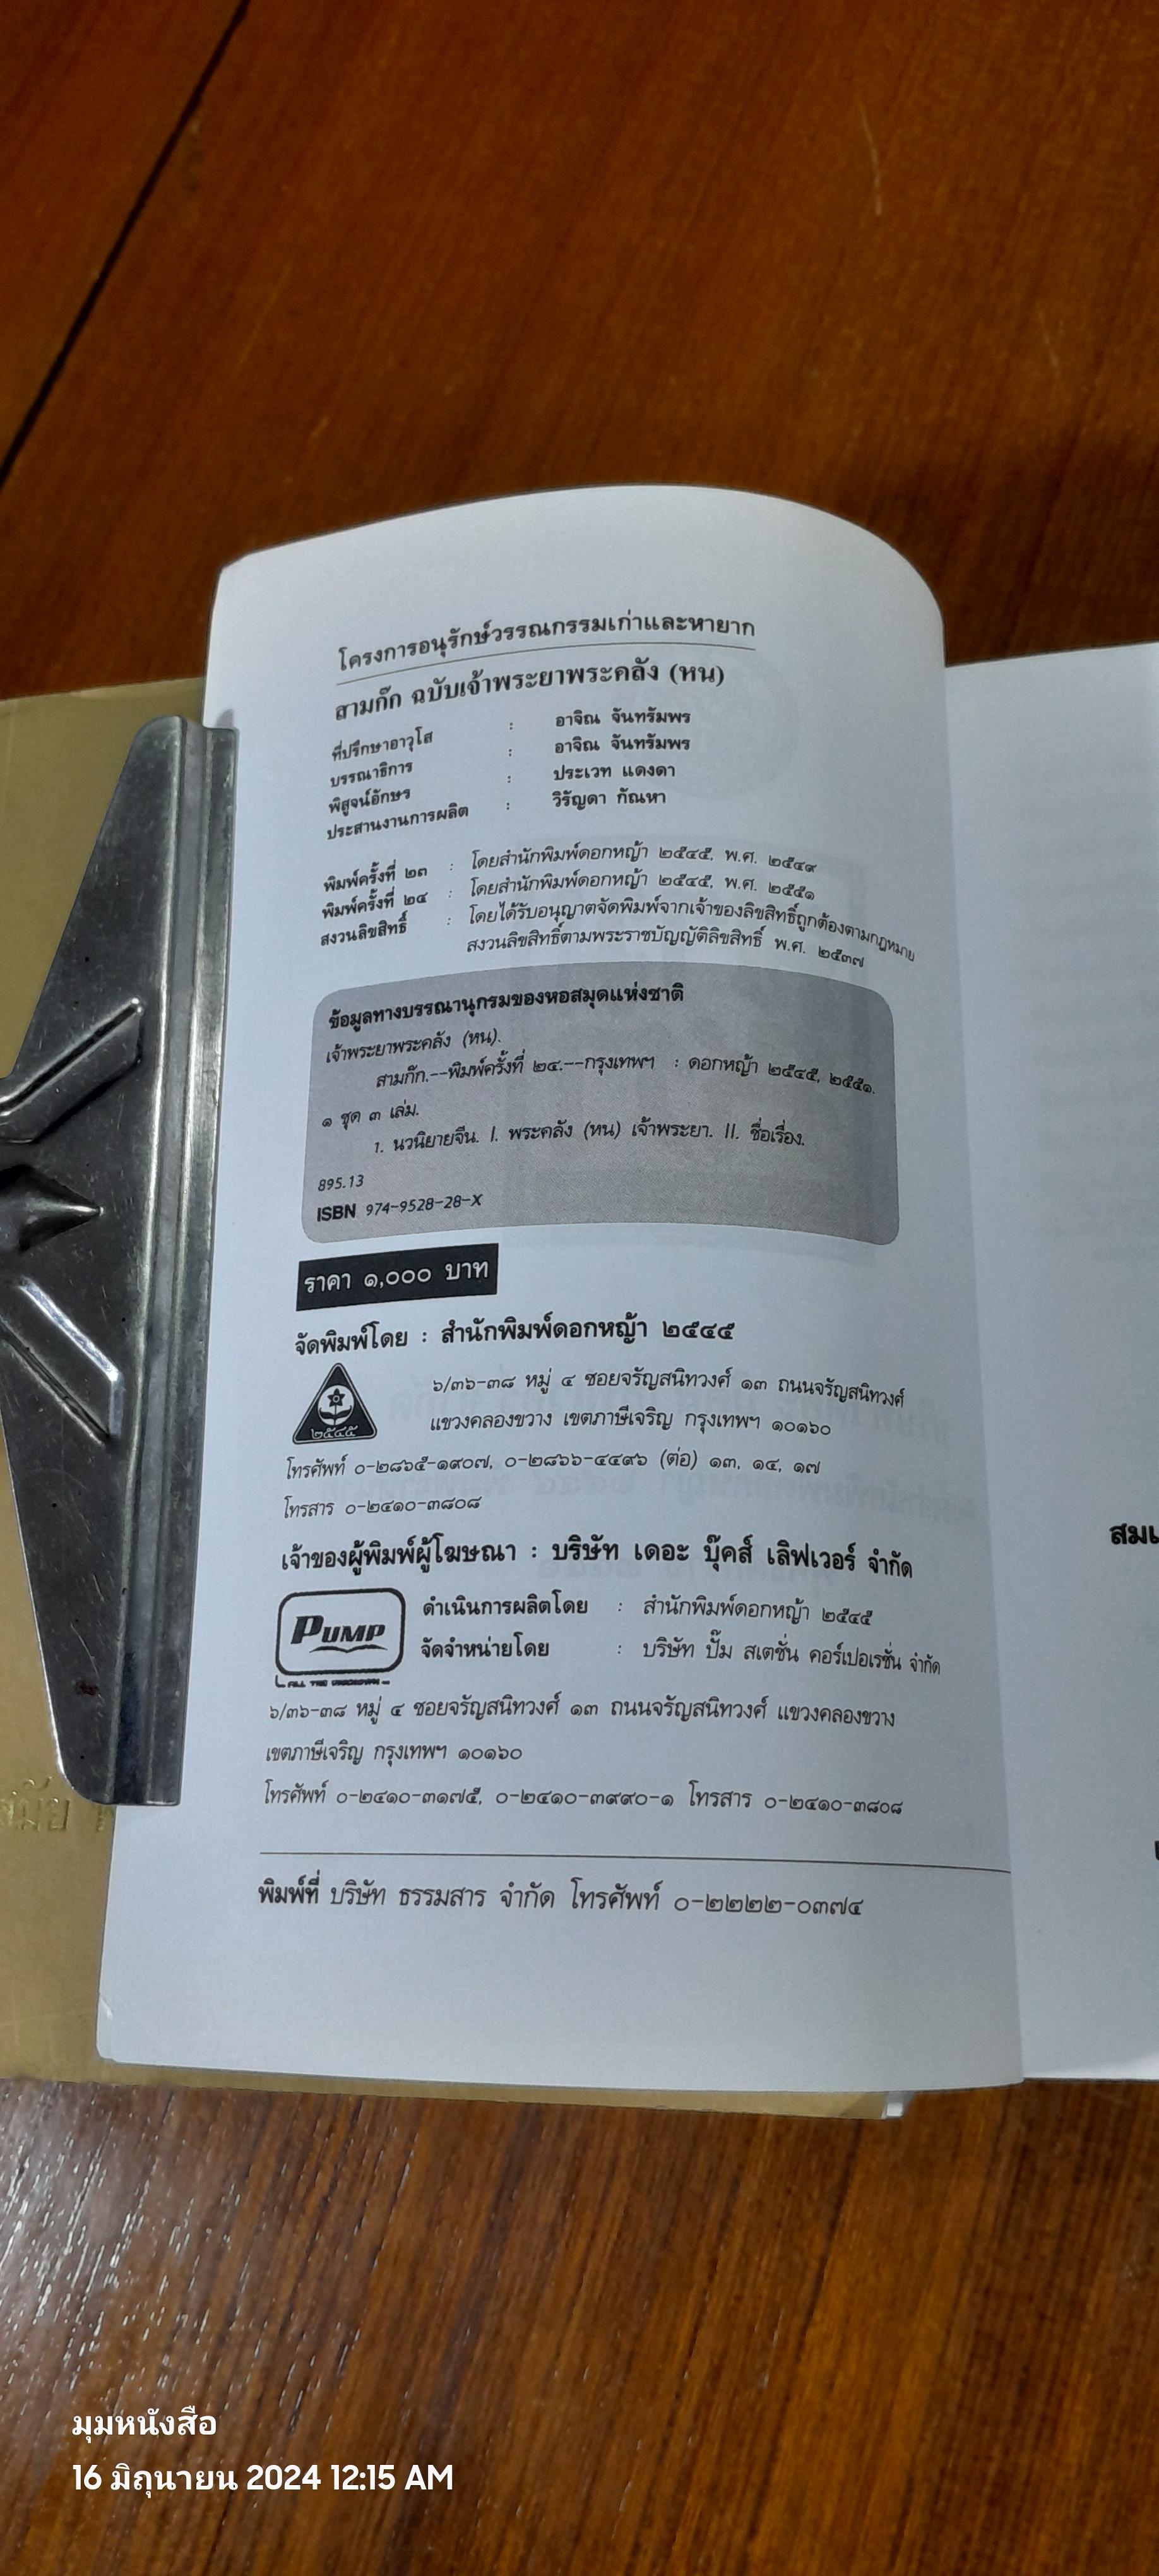 โครงการอนุรักษ์วรรณกรรมเก่าและหายาก
สามก๊ก ฉบับเจ้าพระยาพระคลัง (หน)
ที่ปรึกษาอาวุโส : อาจิณ จันทรัมพร
บรรณาธิการ : อาจิณ จันทรัมพร
พิสูจน์อักษร : ประเวท แดงดา
ประสานงานการผลิต : วิรัญดา กัณหา
พิมพ์ครั้งที่ ๒๓ : โดยสำนักพิมพ์ดอกหญ้า ๒๕๔๕, พ.ศ. ๒๕๔๙
พิมพ์ครั้งที่ ๒๔ : โดยสำนักพิมพ์ดอกหญ้า ๒๕๔๕, พ.ศ. ๒๕๕๑
สงวนลิขสิทธิ์ : โดยได้รับอนุญาตจัดพิมพ์จากเจ้าของลิขสิทธิ์ถูกต้องตามกฎหมาย
สงวนลิขสิทธิ์ตามพระราชบัญญัติลิขสิทธิ์ พ.ศ. ๒๕๓๗
ข้อมูลทางบรรณานุกรมของหอสมุดแห่งชาติ
เจ้าพระยาพระคลัง (หน).
สามก๊ก.--พิมพ์ครั้งที่ ๒๔.--กรุงเทพฯ : ดอกหญ้า ๒๕๔๕, ๒๕๕๑.
๑ ชุด ๓ เล่ม.
1. นวนิยายจีน. I. พระคลัง (หน) เจ้าพระยา. II. ชื่อเรื่อง.
895.13
ISBN 974-9528-28-X
ราคา ๑,๐๐๐ บาท
จัดพิมพ์โดย : สำนักพิมพ์ดอกหญ้า ๒๕๔๕
๖/๓๖-๓๘ หมู่ ๔ ซอยจรัญสนิทวงศ์ ๑๓ ถนนจรัญสนิทวงศ์
แขวงคลองขวาง เขตภาษีเจริญ กรุงเทพฯ ๑๐๑๖๐
๒๕๔๕
โทรศัพท์ ๐-๒๘๖๕-๑๙๐๗, ๐-๒๘๖๖-๔๔๙๖ (ต่อ) ๑๓, ๑๔, ๑๗
โทรสาร ๐-๒๔๑๐-๓๘๐๘
เจ้าของผู้พิมพ์ผู้โฆษณา : บริษัท เดอะ บุ๊คส์ เลิฟเวอร์ จำกัด
PUMP
ดำเนินการผลิตโดย : สำนักพิมพ์ดอกหญ้า ๒๕๔๕
จัดจำหน่ายโดย : บริษัท ปั๊ม สเตชั่น คอร์เปอเรชั่น จำกัด
๖/๓๖-๓๘ หมู่ ๔ ซอยจรัญสนิทวงศ์ ๑๓ ถนนจรัญสนิทวงศ์ แขวงคลองขวาง
เขตภาษีเจริญ กรุงเทพฯ ๑๐๑๖๐
โทรศัพท์ ๐-๒๔๑๐-๓๑๗๕, ๐-๒๔๑๐-๓๙๙๐-๑ โทรสาร ๐-๒๔๑๐-๓๘๐๘
พิมพ์ที่ บริษัท ธรรมสาร จำกัด โทรศัพท์ ๐-๒๒๒๒-๐๓๗๔
มุมหนังสือ
16 มิถุนายน 2024 12:15 AM